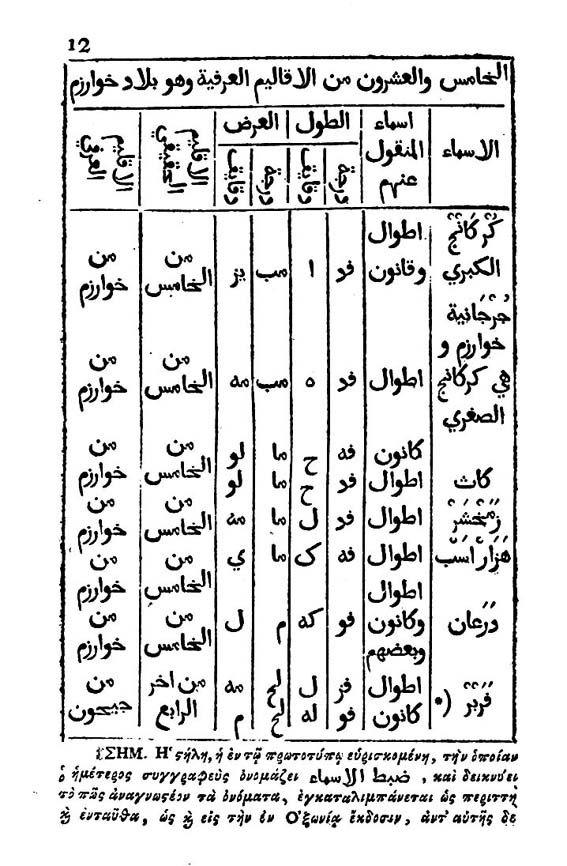 12
الخامس والعشرون من الاقاليم العرفية وهو بلاد خوارزم
الاسماء
اسماء
المنقول
عنهم
الطول
درجة
دقايق
العرض
درجة
دقايق
الاقليم
الحقيقي
الاقليم
العرفي
كُرْكَانْج
الكبري
اطوال
وقانون
فد
ا
مب
يز
من
الخامس
من
خوارزم
جُرْجَانية
خوارزم و
هي كركانج
الصغري
اطوال
فد
ه
مب
مه
من
الخامس
من
خوارزم
كاث
كانون
فه
ح
ما
لو
اطوال
فد
ح
ما
لو
من
الخامس
من
خوارزم
زَمَخْشَرْ
اطوال
فد
ل
ما
مه
من
الخامس
من
خوارزم
هَزَارْاَسْب
اطوال
فه
ك
ما
ي
من
الخامس
من
خوارزم
دَرْعَان
اطوال
وكانون
وبعضهم
فو
كه
م
ل
من
الخامس
من
خوارزم
فَرَبْر (*
اطوال
فز
ل
لح
مه
كانون
فو
له
لح
م
من اخر
الرابع
من
جيحون
ΣΗΜ. Η῾ ςήλη, ἡ ἐν τῷ πρωτοτύπῳ εὑρισκομένη, τὴν ὁποίαν
ὁ ἡμέτερος συγγραφεὺς ὀνομάζει ضبط الاسماء, καὶ δεικνύει
τὸ πῶς ἀναγνωςέον τὰ ὀνόματα, ἐγκαταλιμπάνεται ὡς περιττὴ
ϗ ἐνταῦθα, ὡς ϗ εἰς τὴν ἐν Ο᾿ξωνίᾳ ἔκδοσιν, ἀντ᾿ αὐτῆς δὲ